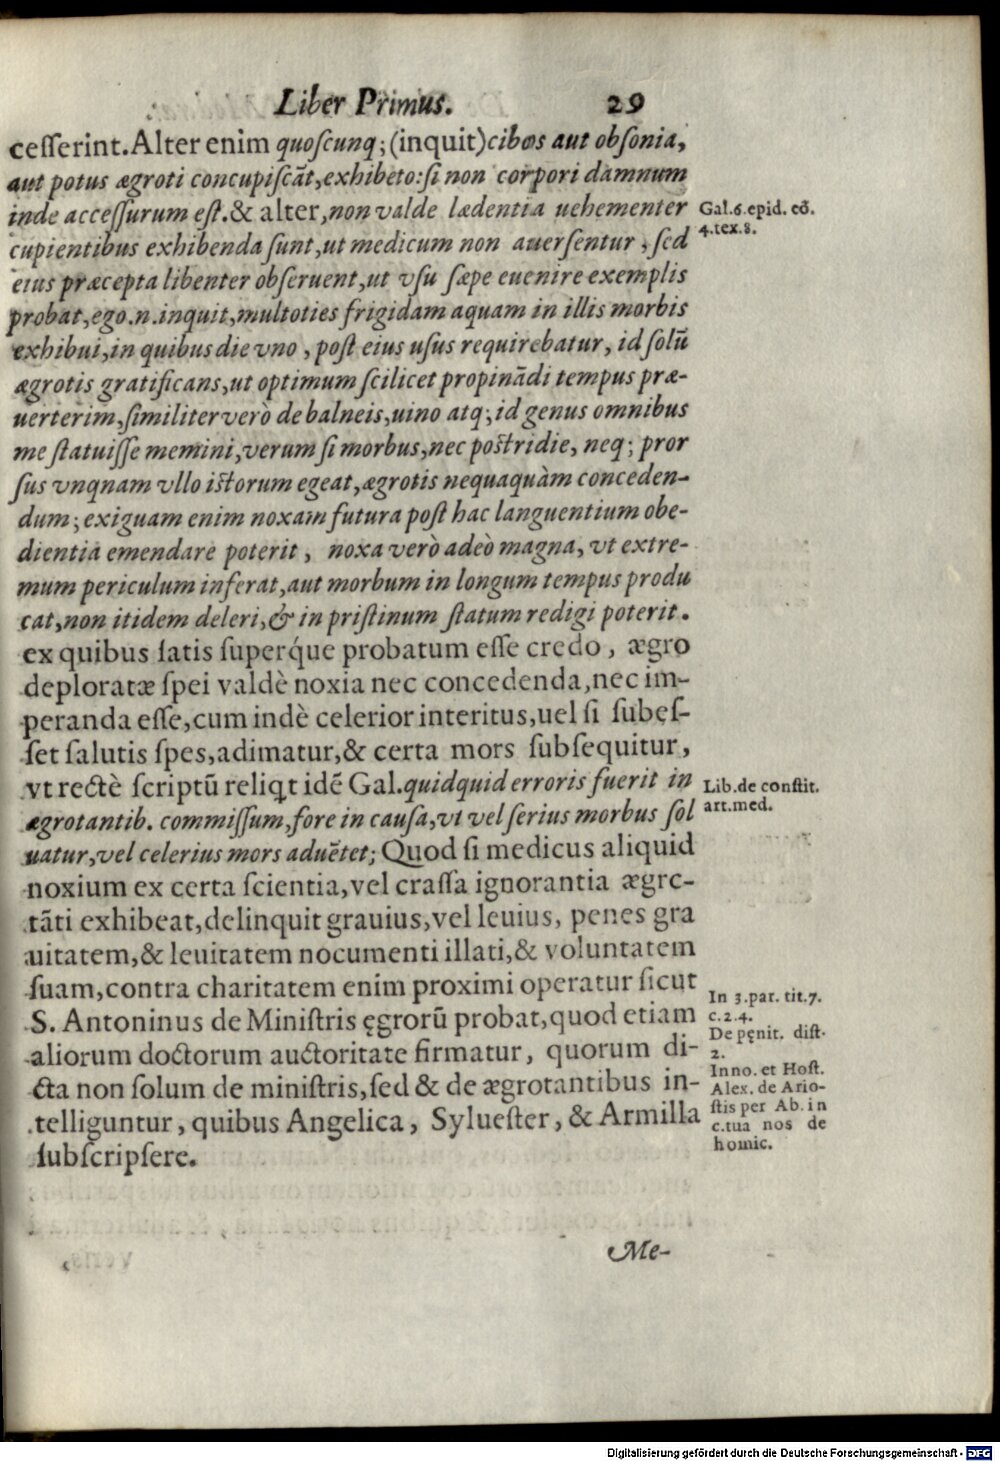 Liber Primus. 29
cesserint. Alter enim quoscunq; (inquit) cibos aut obsonia,
aut potus ægroti concupiscāt, exhibeto: si non corpori damnum
inde accessurum est. & alter, non valde lædentia uehementer
Gal. 6. epid. cō.
4. tex. 8.
cupientibus exhibenda sunt, ut medicum non auersentur, sed
eius præcepta libenter obseruent, ut vsu sæpe euenire exemplis
probat, ego .n. inquit, multoties frigidam aquam in illis morbis
exhibui, in quibus die vno, post eius usus requirebatur, id solū
ægrotis gratificans, ut optimum scilicet propinādi tempus præ-
uerterim, similiter verò de balneis, uino atq; id genus omnibus
me statuisse memini, verum si morbus, nec postridie, neq; pror
sus vnqnam vllo istorum egeat, ægrotis nequaquàm conceden-
dum; exiguam enim noxam futura post hac languentium obe-
dientia emendare poterit, noxa verò adeò magna, vt extre-
mum periculum inferat, aut morbum in longum tempus produ
cat, non itidem deleri, & in pristinum statum redigi poterit.
ex quibus satis superq́ue probatum esse credo, ægro
deploratæ spei valdè noxia nec concedenda, nec im-
peranda esse, cum indè celerior interitus, uel si subes-
set salutis spes, adimatur, & certa mors subsequitur,
vt rectè scriptū reliqt idē Gal. quidquid erroris fuerit in
Lib. de constit.
art. med.
ægrotantib. commissum, fore in causa, vt vel serius morbus sol
uatur, vel celerius mors aduētet; Quod si medicus aliquid
noxium ex certa scientia, vel crassa ignorantia ægro-
tāti exhibeat, delinquit grauius, vel leuius, penes gra
uitatem, & leuitatem nocumenti illati, & voluntatem
suam, contra charitatem enim proximi operatur sicut
In 3. par. tit. 7.
c. 2. 4.
S. Antoninus de Ministris ęgrorū probat, quod etiam
De pęnit. dist.
2.
aliorum doctorum auctoritate firmatur, quorum di-
Inno. et Host.
Alex. de Ario-
stis per Ab. in
c. tua nos de
homic.
cta non solum de ministris, sed & de ægrotantibus in-
telliguntur, quibus Angelica, Syluester, & Armilla
subscripsere.
Me-
Digitalisierung gefördert durch die Deutsche Forschungsgemeinschaft - DFG